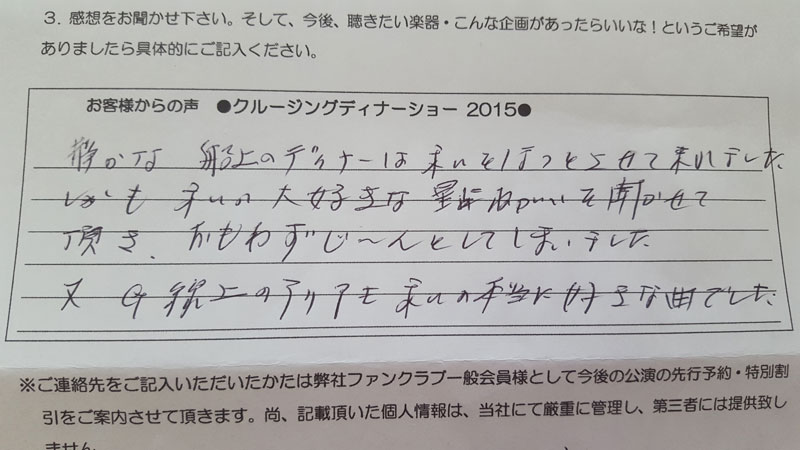 3. 感想をお聞かせ下さい。そして、今後、聴きたい楽器・こんな企画があったらいいな！というご希望が
ありましたら具体的にご記入ください。
お客様からの声 ●クルージングディナーショー 2015●
静かな 船上のディナーは 私をほっとさせて くれました
しかも 私の 大好きな 星に を聞かせて
頂き、おもわずじ〜んとしてしまいました
又 G線上のアリアも 私の本当に好きな曲でした.
※ご連絡先をご記入いただいたかたは弊社ファンクラブ一般会員様として今後の公演の先行予約・特別割
引をご案内させて頂きます。尚、記載頂いた個人情報は、当社にて厳重に管理し、第三者には提供致し
ません。